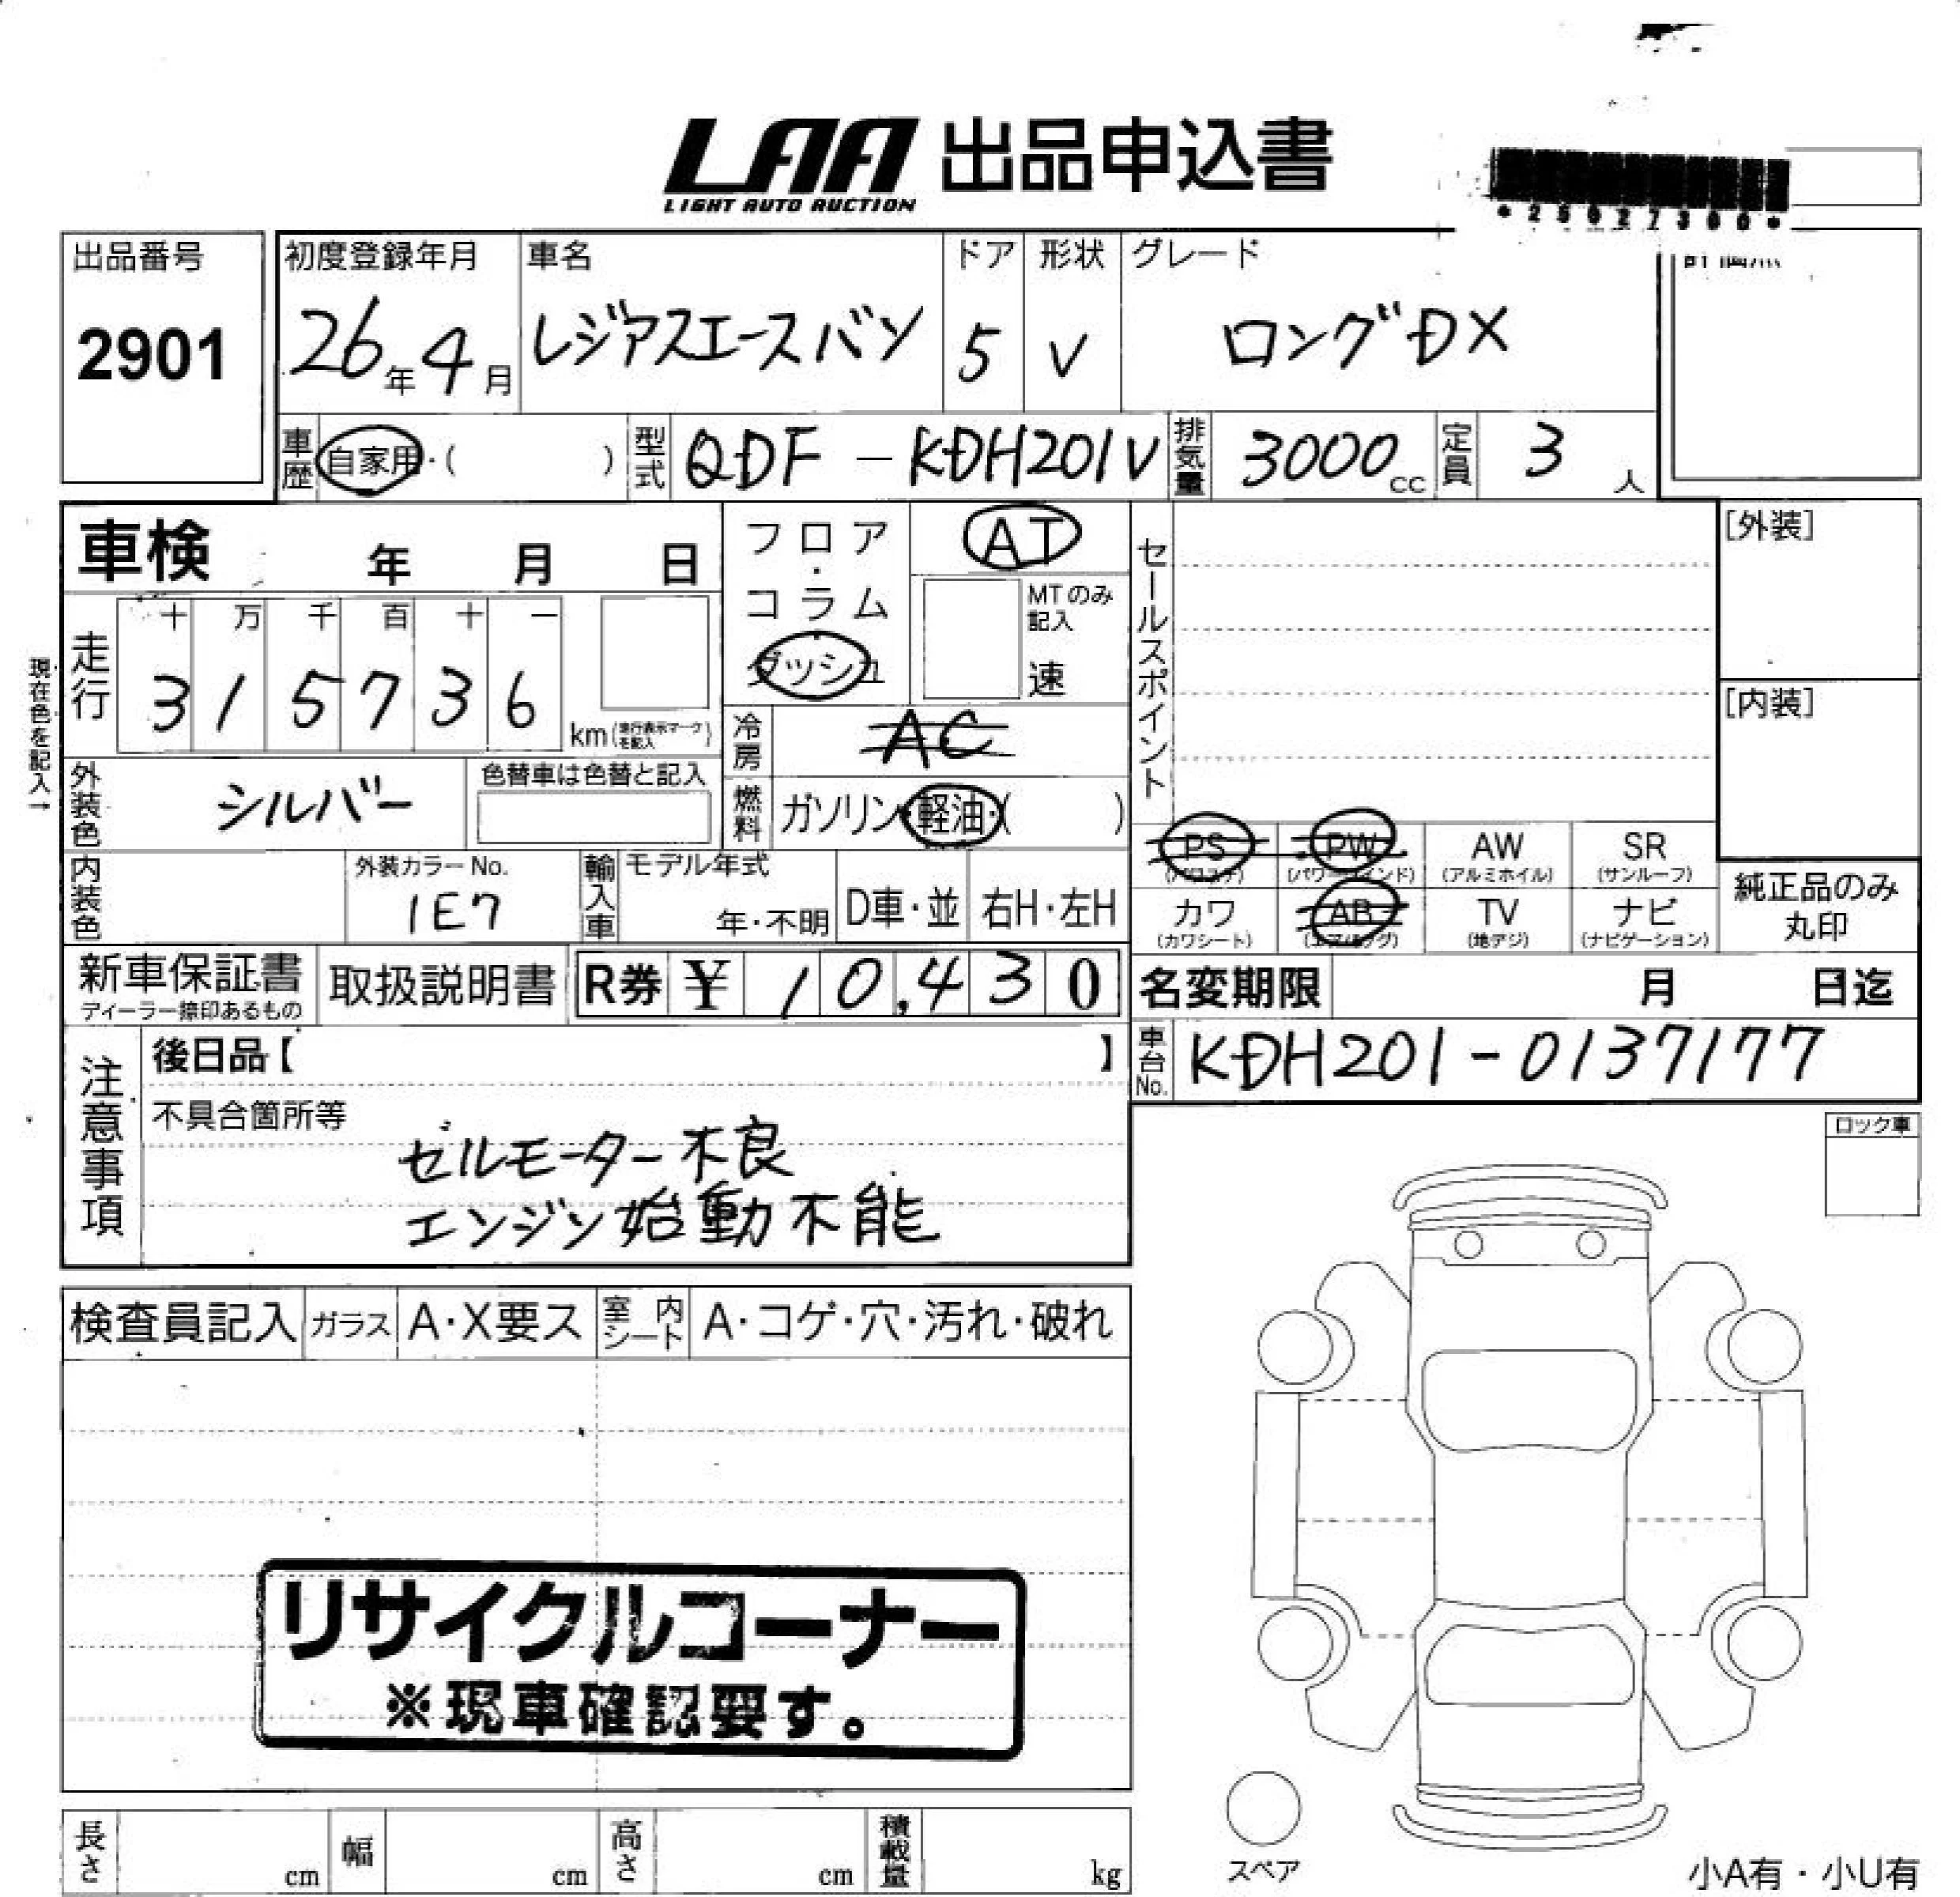 LAA 出品申込書
LIGHT AUTO AUCTION
*25027300*
出品番号
2901
初度登録年月
26年4月
車名
レジアスエースバン
ドア
5
形状
V
グレード
ロングDX
車歴
自家用・( )
型式
QDF-KDH201V
排気量
3000cc
定員
3人
車検 年 月 日
フロア・コラム・ダッシュ
AT
MTのみ記入
速
セールスポイント
[外装]
[内装]
現在色を記入→
走行
十 万 千 百 十 一
3 1 5 7 3 6
km(走行表示マークを記入)
冷房
AC
外装色
シルバー
色替車は色替と記入
燃料
ガソリン・軽油・( )
PS
PW
AW
(アルミホイル)
SR
(サンルーフ)
カワ
(カワシート)
AB
TV
(地デジ)
ナビ
(ナビゲーション)
純正品のみ
丸印
内装色
外装カラーNo.
1E7
輸入車
モデル年式
年・不明
D車・並
右H・左H
新車保証書
ディーラー捺印あるもの
取扱説明書
R券 ¥ 10,430
名変期限 月 日迄
車台No.
KDH201-0137177
注意事項
後日品【 】
不具合箇所等
セルモーター不良
エンジン始動不能
ロック車
検査員記入
ガラス
A・X要ス
室内シート
A・コゲ・穴・汚れ・破れ
リサイクルコーナー
※現車確認要す。
長さ cm
幅 cm
高さ cm
積載量 kg
スペア
小A有・小U有